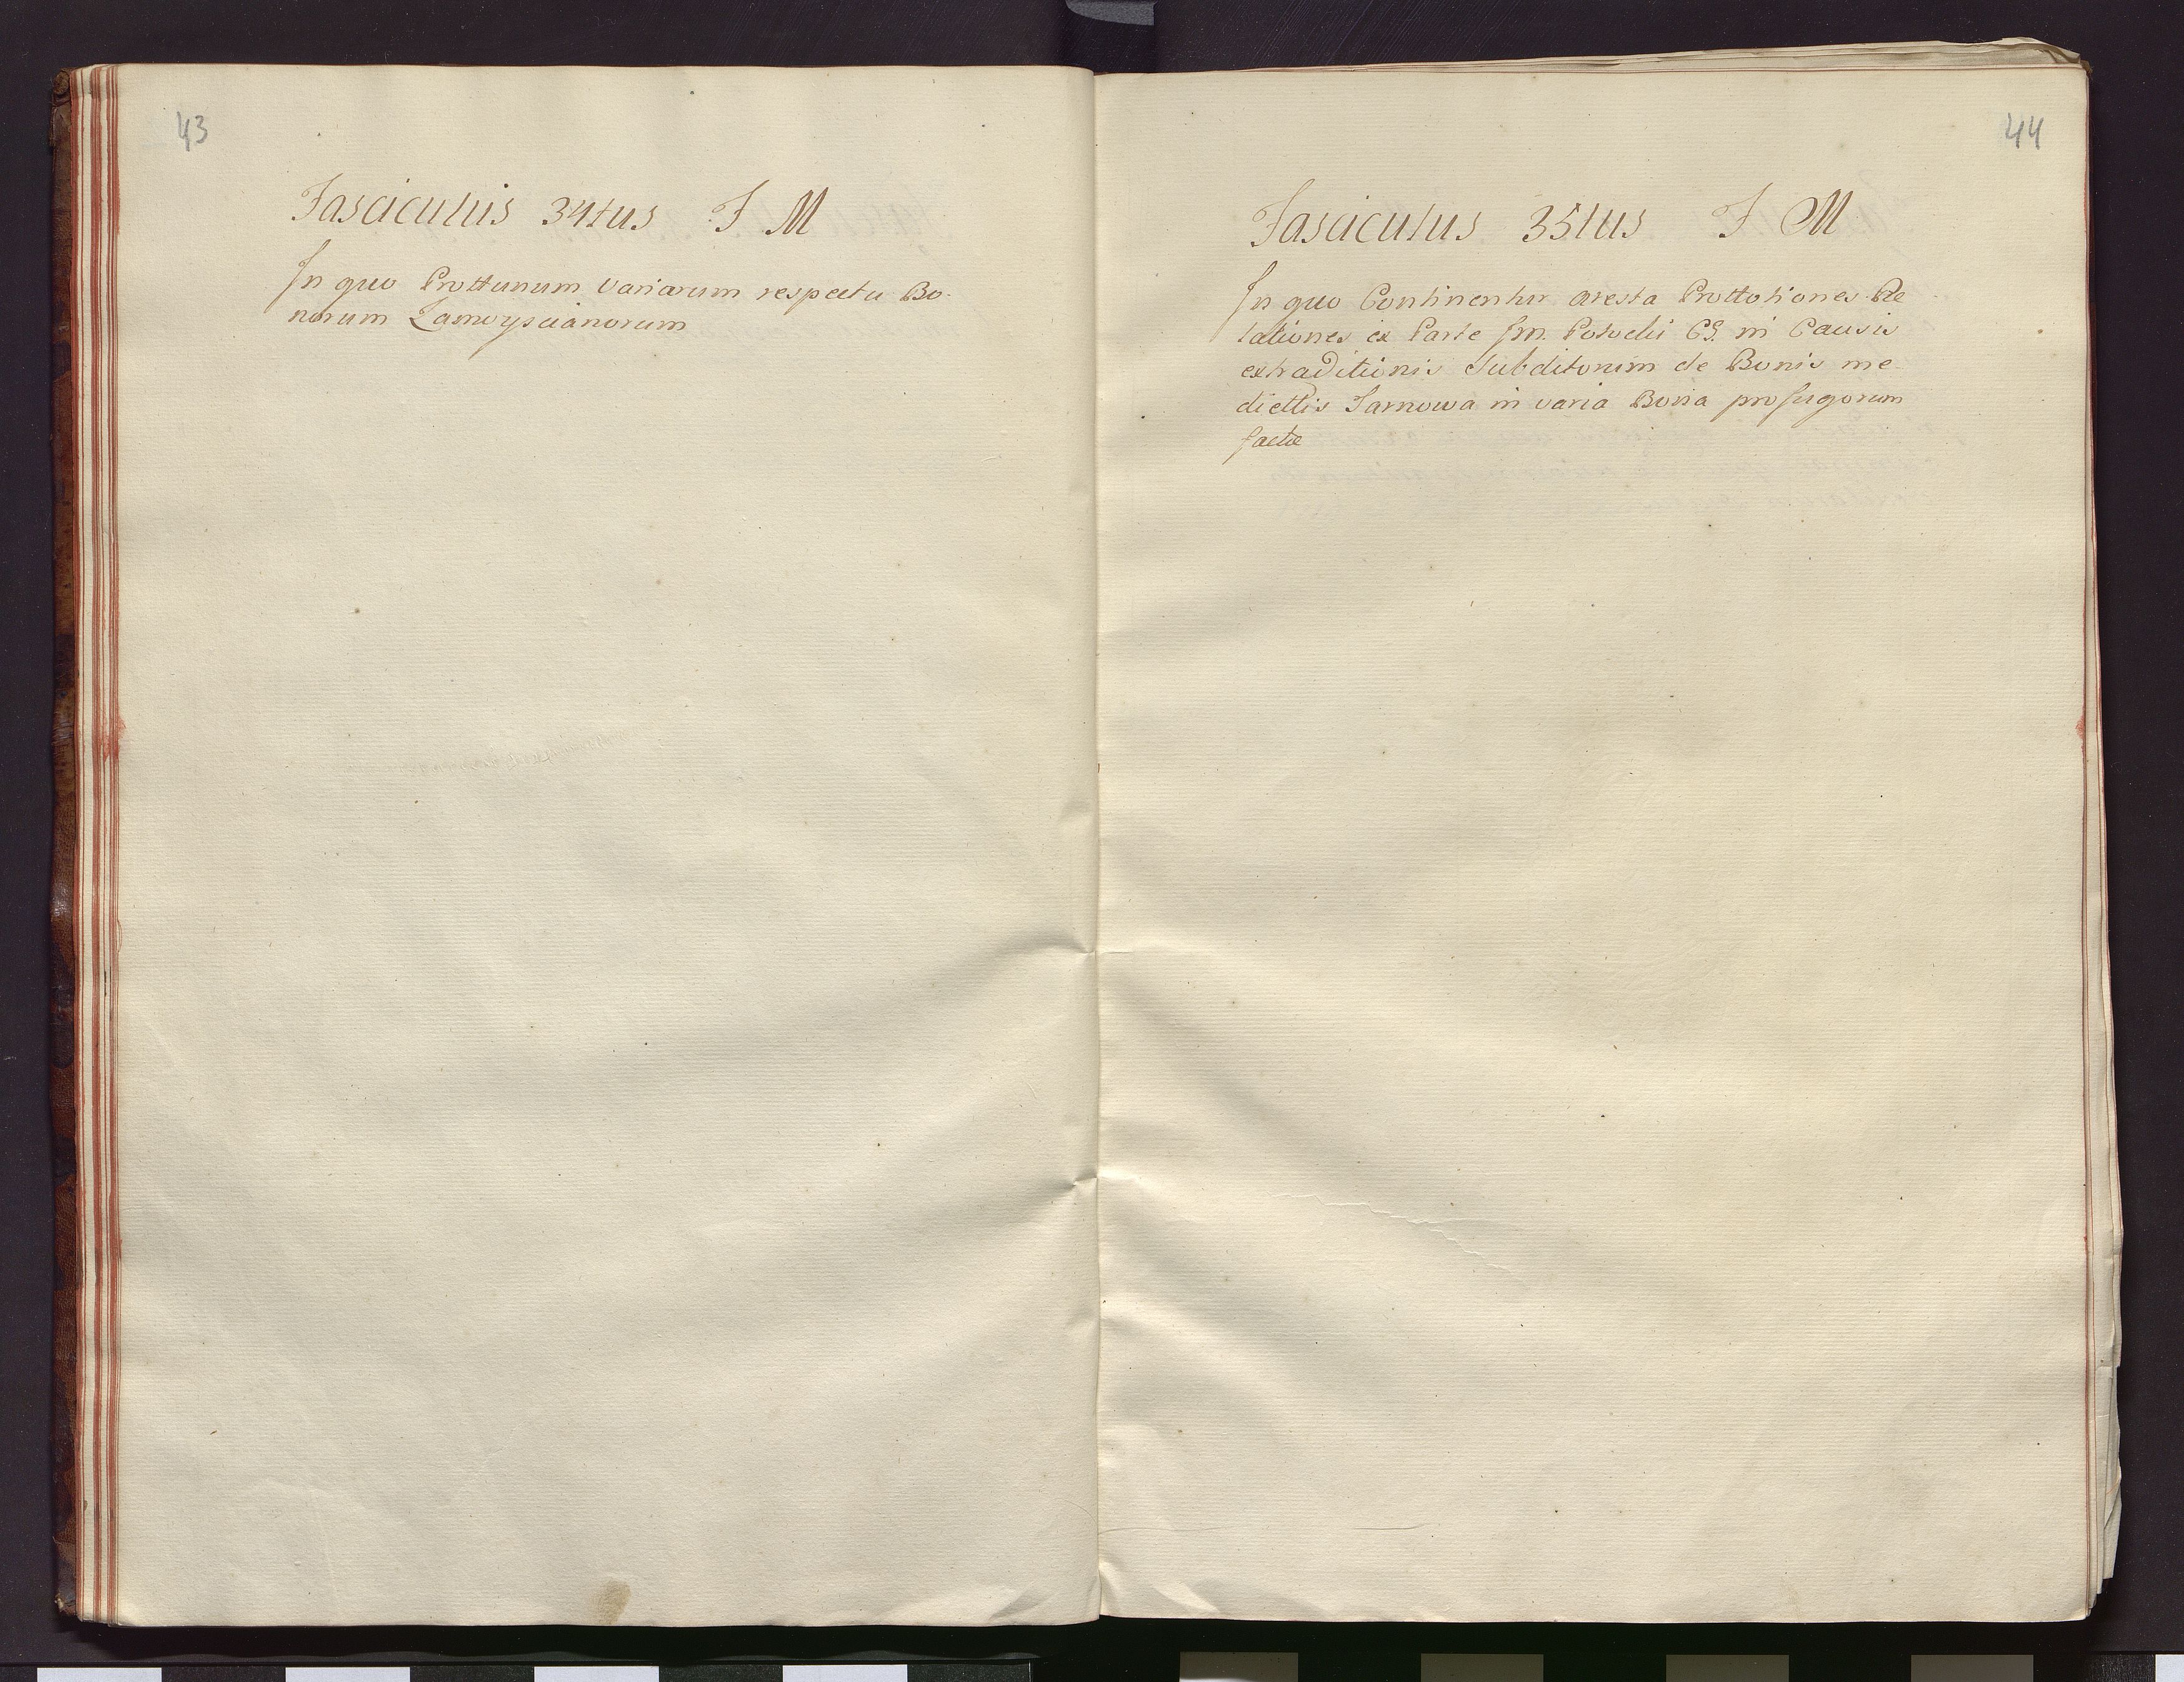 43
Fasciculus 34tus F M
In quo Prottunum Variarum respectu Bo-
norum Zamoyscianorum
44
Fasciculus 35tus F M
In quo Continentur aresta Prottotiones Re
lationes ex Parte Im. Potocki CS. in Causis
extraditionis Subditorum de Bonis me-
diettis Tarnowa in varia Bona profugorum
factæ